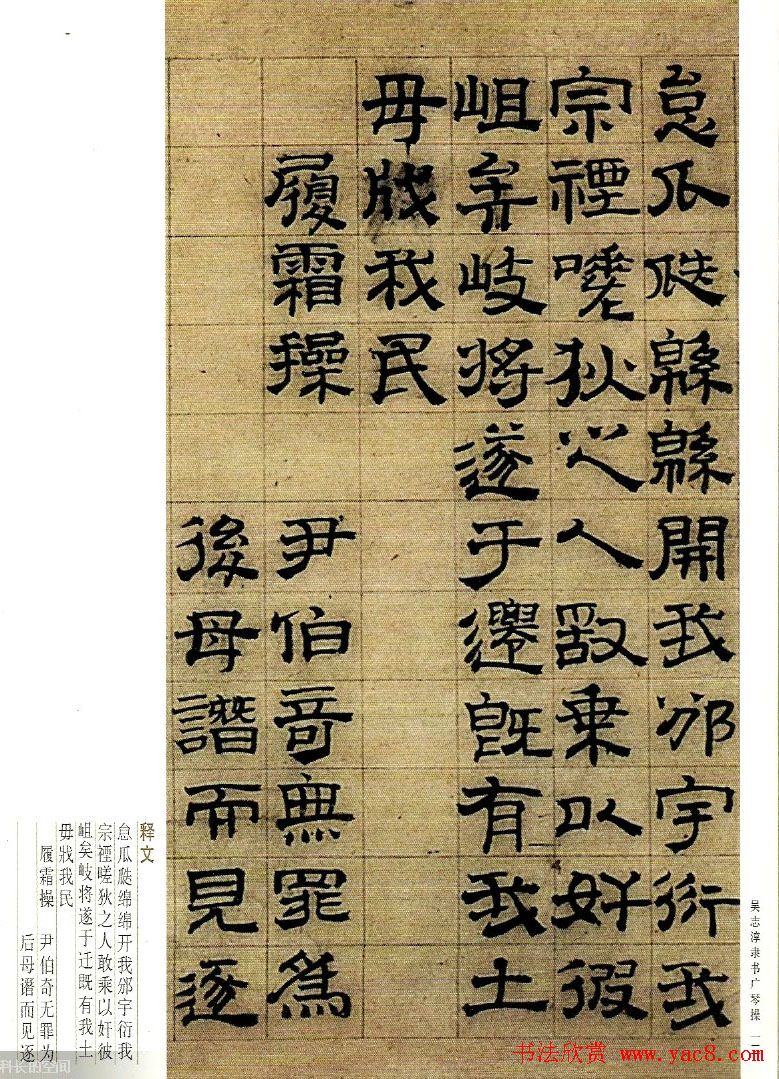 怠瓜瓞緜緜開我邠宇衍我
宗禋嗟狄之人敢乘以奸彼
岨矣岐將遂于遷既有我土
毋戕我民
履霜操 尹伯奇無罪爲
後母譖而見逐
释文
怠瓜瓞绵绵开我邠宇衍我
宗禋嗟狄之人敢乘以奸彼
岨矣岐将遂于迁既有我土
毋戕我民
履霜操 尹伯奇无罪为
后母谮而见逐
吴志淳隶书广琴操
书法欣赏 www.yac8.com
科长的空间